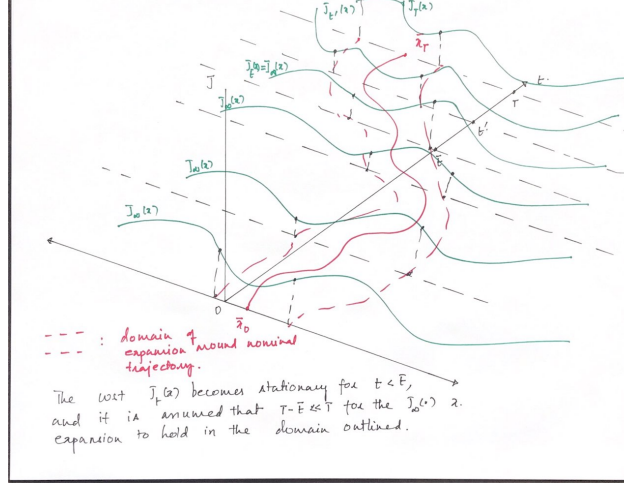 J̄_t'(x)
J̄_T(x)
x̄_T
J̄_t̄(x)=J̄_∞(x)
J
J̄_∞(x)
t
T
t'
t̄
J̄_∞(x)
J̄_∞(x)
0
x̄_0
: domain of
expansion around nominal
trajectory.
The cost J̄_t(x) becomes stationary for t < t̄,
and it is assumed that T-t̄ << T for the J̄_∞(•)
x
expansion to hold in the domain outlined.